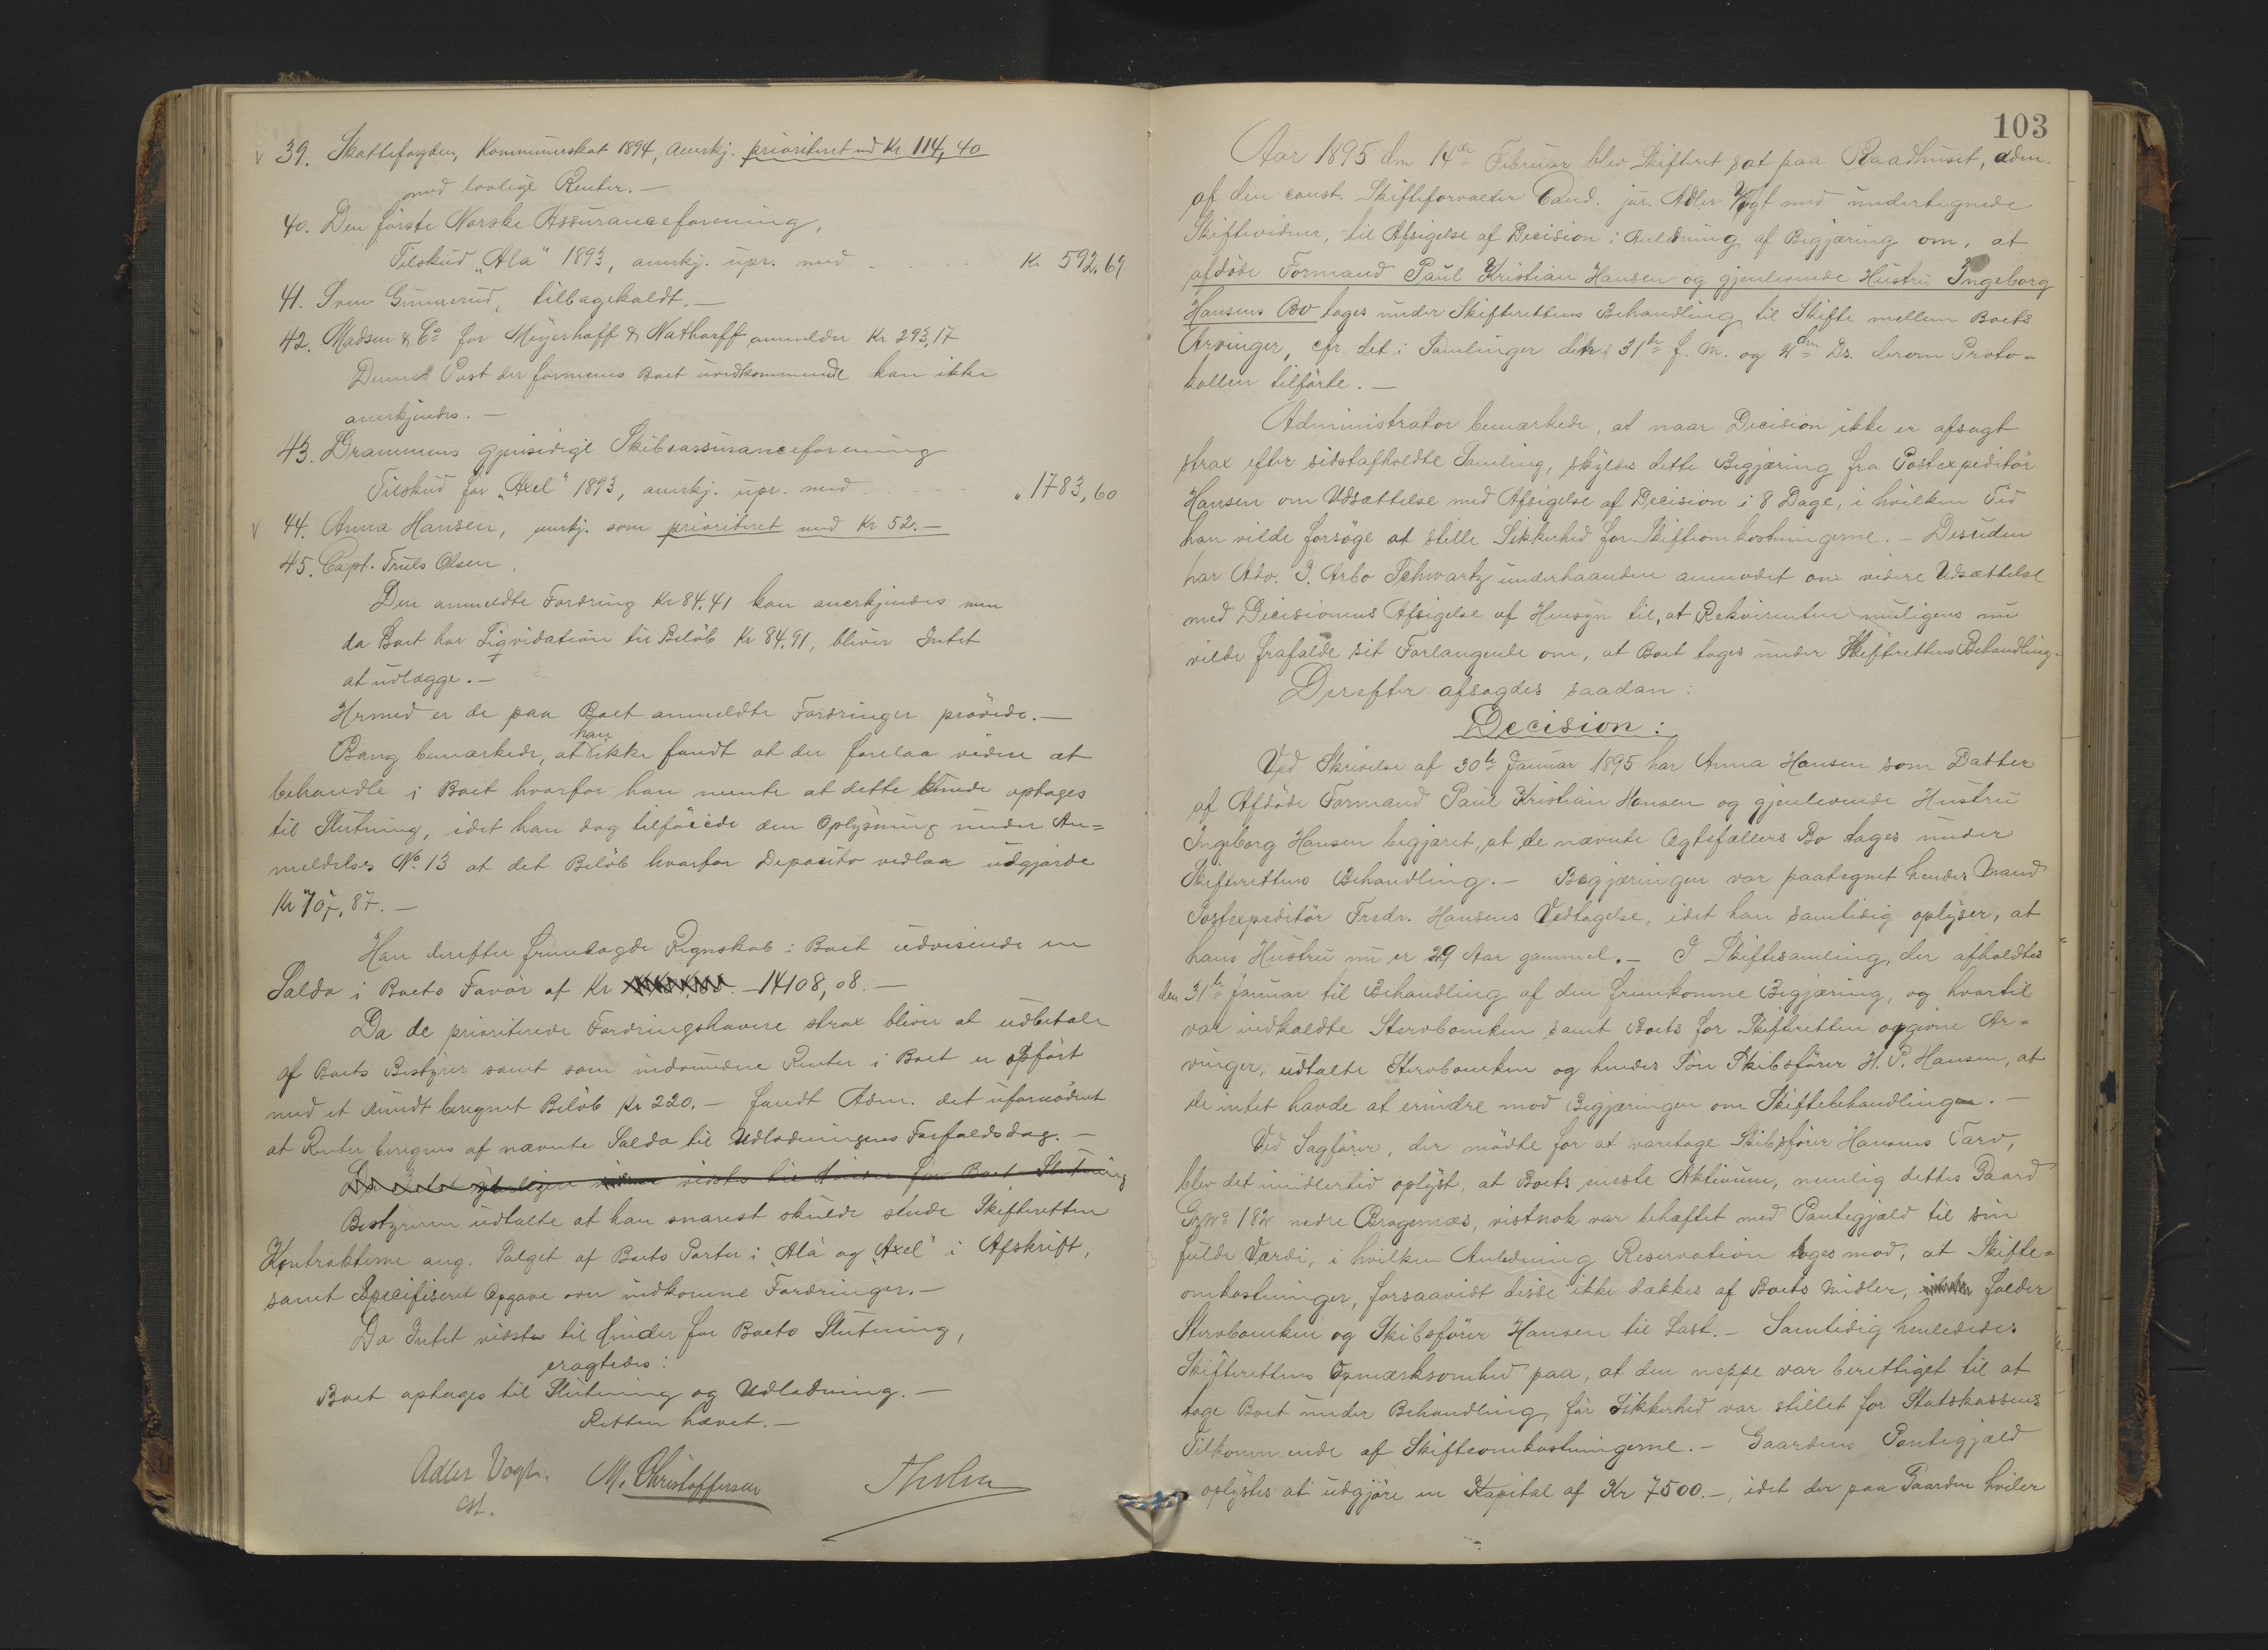 39. Skattefogden, Kommuneskat 1894, anerkj. prioriteret med Kr 114,40
med lovlige Renter. —
40. Den første Norske Assuranceforening,
Tilskud „Ala“ 1893, anerkj. upr. med . . . . Kr 592,69
41. Sven Gunnerud, tilbagekaldt. —
42. Madsen & Co for Meyerhoff & Nathorff anmelder Kr 293,17
Denne Post der formenes Boet uvedkommende kan ikke
anerkjendes. —
43. Drammens gjensidige Skibsassuranceforening
Tilskud for „Axel“ 1893, anerkj. upr. med . . . . „ 1783,60
44. Anna Hansen, anerkj. som prioriteret med Kr 52. —
45. Capt. Truls Olsen.
Den anmeldte Fordring Kr 84.41 kan anerkjendes men
da Boet har Liqvidation til Beløb Kr 84.91, bliver Intet
at udlægge. —
Hermed er de paa Boet anmeldte Fordringer prøvede. —
Bang bemærkede, at han ikke fandt at der forelaa videre at
behandle i Boet hvorfor han mente at dette kunde optages
til Slutning, idet han dog tilføiede den Oplysning under An=
meldelse No 13 at det Beløb hvorfor Deposito vedlaa udgjorde
Kr
Han derefter fremlagde Regnskab i Boet udvisende en
Saldo i Boets Favør af Kr 14108,08. —
Da de prioriterede Fordringshavere strax bliver at udbetale
af Boets Bestyrer samt som indvundne Renter i Boet er opført
med et rundt beregnet Beløb Kr 220. — fandt Adm. det ufornødent
at Renter beregnes af nævnte Saldo til Udlodningens Forfaldsdag. —
Bestyreren udtalte at han snarest skulde sende Skifteretten
Kontrakterne ang. Salget af Boets Parter i „Ala“ og „Axel“ i Afskrift,
samt specifiseret Opgave over indkomne Fordringer. —
Da Intet vidstes til Hinder for Boets Slutning,
eragtedes:
Boet optages til Slutning og Udlodning. —
Retten hævet. —
Adler Vogt. M. Christoffersen
cst.
103
Aar 1895 den 14de Februar blev Skifteret sat paa Raadhuset, adm.
af den const. Skifteforvalter Cand. jur. Adler Vogt med undertegnede
Skiftevidner, til Afsigelse af Decision i Anledning af Begjæring om, at
afdøde Formand Paul Kristian Hansen og gjenlevende Hustru Ingeborg
Hansens Bo tages under Skifterettens Behandling til Skifte mellem Boets
Arvinger, cfr. det i Samlinger den 31te f. M. og ds. herom Proto=
kollen tilførte. —
Administrator bemærkede, at naar Decision ikke er afsagt
strax efter sidstafholdte Samling, skyldes dette Begjæring fra Postexpeditør
Hansen om Udsættelse med Afsigelse af Decision i 8 Dage, i hvilken Tid
han vilde forsøge at stille Sikkerhed for Skifteomkostningerne. — Desuden
har Adv. J. Arbo Schwartz underhaanden anmodet om videre Udsættelse
med Decisionens Afsigelse af Hensyn til, at Rekvirenten muligens nu
vilde frafalde sit Forlangende om, at Boet tages under Skifterettens Behandling.
Derefter afsagdes saadan:
Decision:
Ved Skrivelse af 30te Januar 1895 har Anna Hansen som Datter
af Afdøde Formand Paul Kristian Hansen og gjenlevende Hustru
Ingeborg Hansen begjæret, at de nævnte Ægtefællers Bo tages under
Skifterettens Behandling. — Begjæringen var paategnet hendes Mand
Postexpeditør Fredr. Hansens Vedtagelse, idet han samtidig oplyser, at
hans Hustru nu er 29 Aar gammel. — I Skiftesamling, der afholdtes
den 31te Januar til Behandling af den fremkomne Begjæring, og hvortil
var indkaldte Stervboenken samt Boets for Skifteretten opgivne Ar=
vinger, udtalte Stervboenken og hendes Søn Skibsfører H. P. Hansen, at
de intet havde at erindre mod Begjæringen om Skiftebehandlingen. —
Ved Sagfører, der mødte for at varetage Skibsfører Hansens Tarv,
blev det imidlertid oplyst, at Boets eneste Aktivum, nemlig dettes Gaard
No 182 nedre Bragernæs, vistnok var behæftet med Pantegjæld til sin
fulde Værdi, i hvilken Anledning Reservation toges mod, at Skifte=
omkostninger, forsaavidt disse ikke dækkes af Boets Midler, falder
Stervboenken og Skibsfører Hansen til Last. — Samtidig henlededes
Skifterettens Opmærksomhed paa, at den neppe var berettiget til at
tage Boet under Behandling, før Sikkerhed var stillet for Statskassens
Tilkommende af Skifteomkostningerne. — Gaardens Pantegjæld
oplystes at udgjøre en Kapital af Kr 7500. —, idet der paa Gaarden hviler